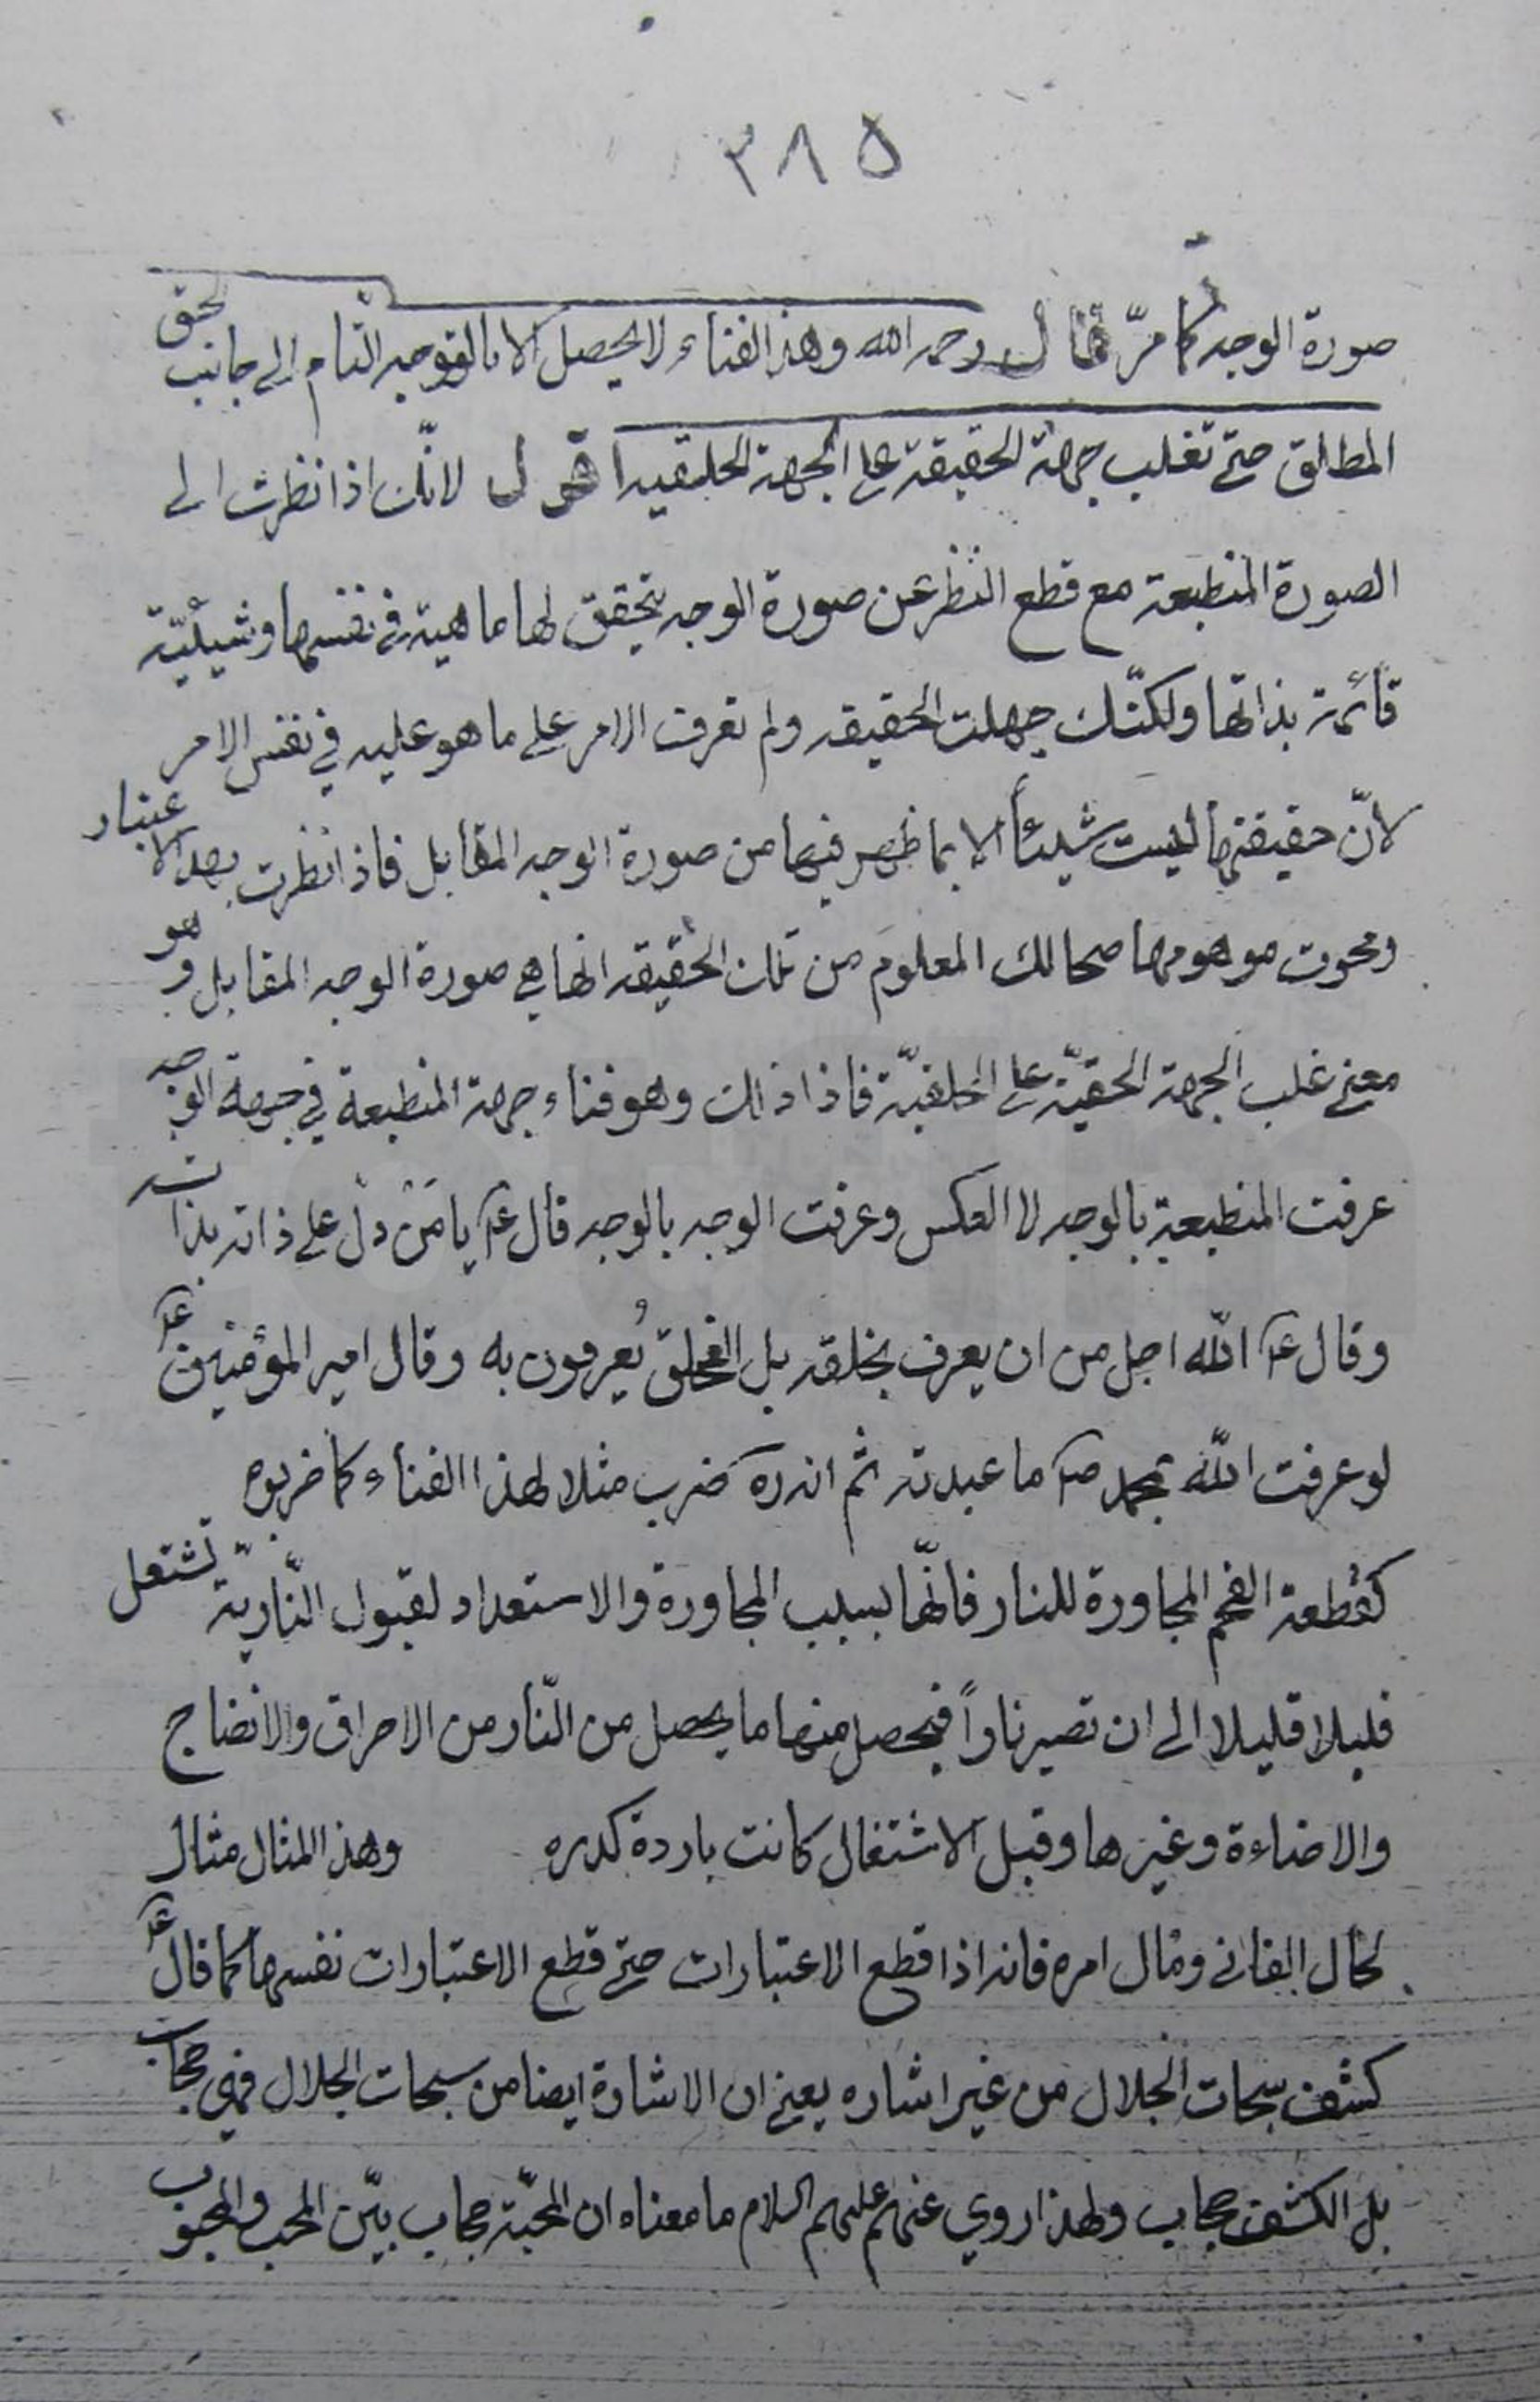 ٣٨٥
صورة الوجه كما مرّ قال رحمه الله وهذا الفناء لا يحصل الا بالتوجه التام الى جانب الحق
المطلق حتى تغلب جهة الحقيقة على الجهة الخلقية اقول لانّك اذا نظرت الى
الصورة المنطبعة مع قطع النظر عن صورة الوجه تحقق لها ماهية في نفسها وشيئيّة
قائمة بذاتها ولكنّك جهلت الحقيقه ولم تعرف الامر على ما هو عليه في نفس الامر
لانّ حقيقتها ليست شيئاً الا بما ظهر فيها من صورة الوجه المقابل فاذا نظرت بهذا الاعتبار
ومحوت موهومها صحا لك المعلوم من تلك الحقيقه انها هي صورة الوجه المقابل وهو
معنى غلب الجهة الحقيّة على الخلقيّة فاذا ذلك وهو فناء جهة المنطبعة في جهة الوجه
عرفت المنطبعة بالوجه لا العكس وعرفت الوجه بالوجه قال ع يا مَنْ دلّ على ذاته بذاته
وقال ع الله اجل من ان يعرف بخلقه بل الخلق يُعرفون به وقال امير المؤمنين ع
لو عرفت الله بمحمد ص ما عبدته ثم انه ره ضرب مثلا لهذا الفناء كما ضربوه
كقطعة الفحم المجاورة للنار فانّها بسبب المجاورة والاستعداد لقبول النّاريّة تشتعل
قليلا قليلا الى ان تصير ناراً فيحصل منها ما يحصل من النّار من الاحراق والانضاج
والاضاءة وغيرها وقبل الاشتغال كانت باردة كدره وهذا المثال مثال
لحال الفانى ومآل امره فانه اذا قطع الاعتبارات حتى قطع الاعتبارات نفسها كما قال ع
كشف سبحات الجلال من غير اشاره يعنى ان الاشارة ايضا من سبحات الجلال فهى حجاب
بل الكشف حجاب ولهذا روي عنهم عليهم السلام ما معناه ان المحبّة حجاب بيّن المحب والمحبوب